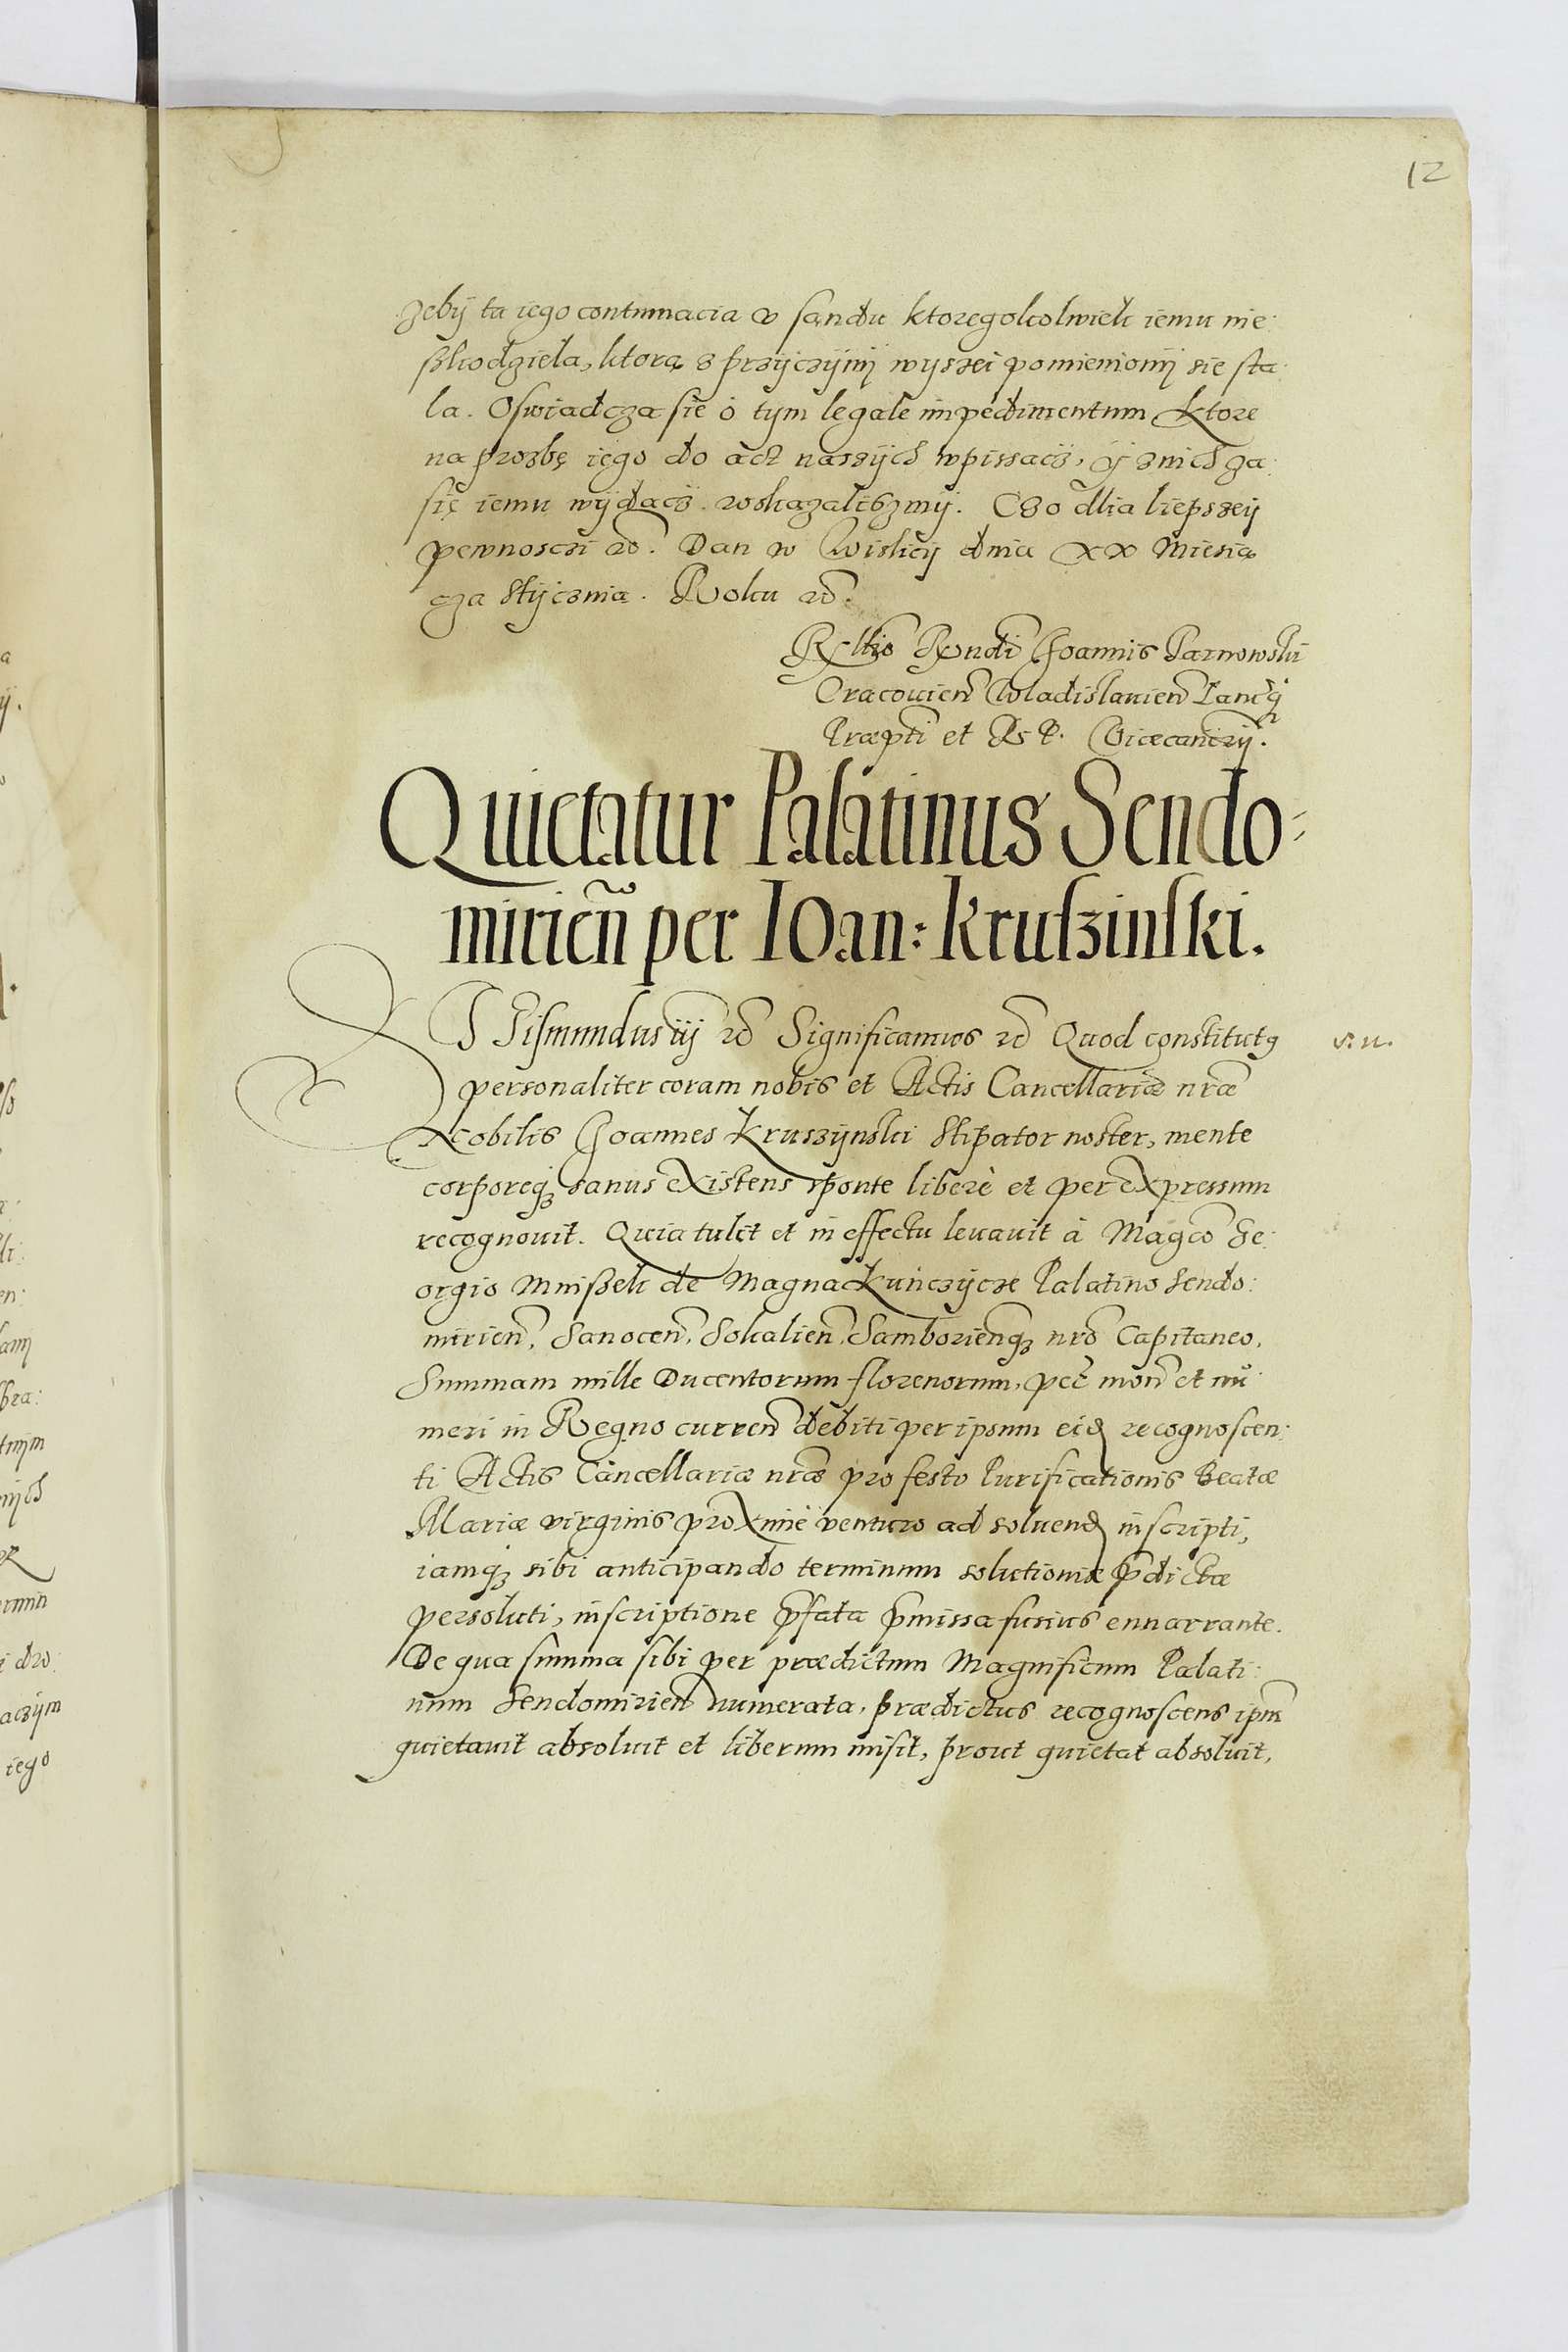 12
zeby ta iego contumacia w sąndu ktoregokolwiek iemu nie:
szkodziela, ktora z przyczyny wyszei pomieniony sie sta:
la. Oswiadcza sie o tym legale impedimentum ktore
na prozbę iego do act naszych wpissacz, y znich za:
się iemu wydacz roskazaliszmy. Czo dlia liepszey
pewnosczi etc. Dan w Wislicy dnia XX Miesią
cza Stycznia. Roku etc.
Rltio Rndi Joannis Tarnowski
Cracouien Wladislauien Lancq
Praepti et R. P. Vicecancrij.
Quietatur Palatinus Sendo=
mirien per Ioan: Kruszinski.
Sigismundus iij etc Significamus etc Quod constitutus
v. u.
personaliter coram nobis et Actis Cancellariae nrae
Nobilis Joannes Kruszynski Stipator noster, mente
corporeq sanus existens sponte liberè et per expressum
recognouit. Quia tulit et in effectu leuauit à Magco Ge:
orgio Mniszek de Magna Kunczycze Palatino Sendo:
mirien, Sanocen, Sokalien, Samborienq nro Capitaneo,
Summam mille Ducentorum florenorum, pec mon et nu
meri in Regno curren debiti per ipsum eid recognoscen:
ti Actis Cancellariae nrae pro festo Purificationis Beatae
Mariae virginis proximè venturo ad soluend inscripti,
iamq sibi anticipando terminum solutionis pdictae
persoluti, inscriptione pfata pmissa fusius ennarrante.
De qua summa sibi per praedictum Magnificum Palati:
num Sendomirien numerata, praedictus recognoscens ipm
quietauit absoluit et liberum misit, prout quietat absoluit,